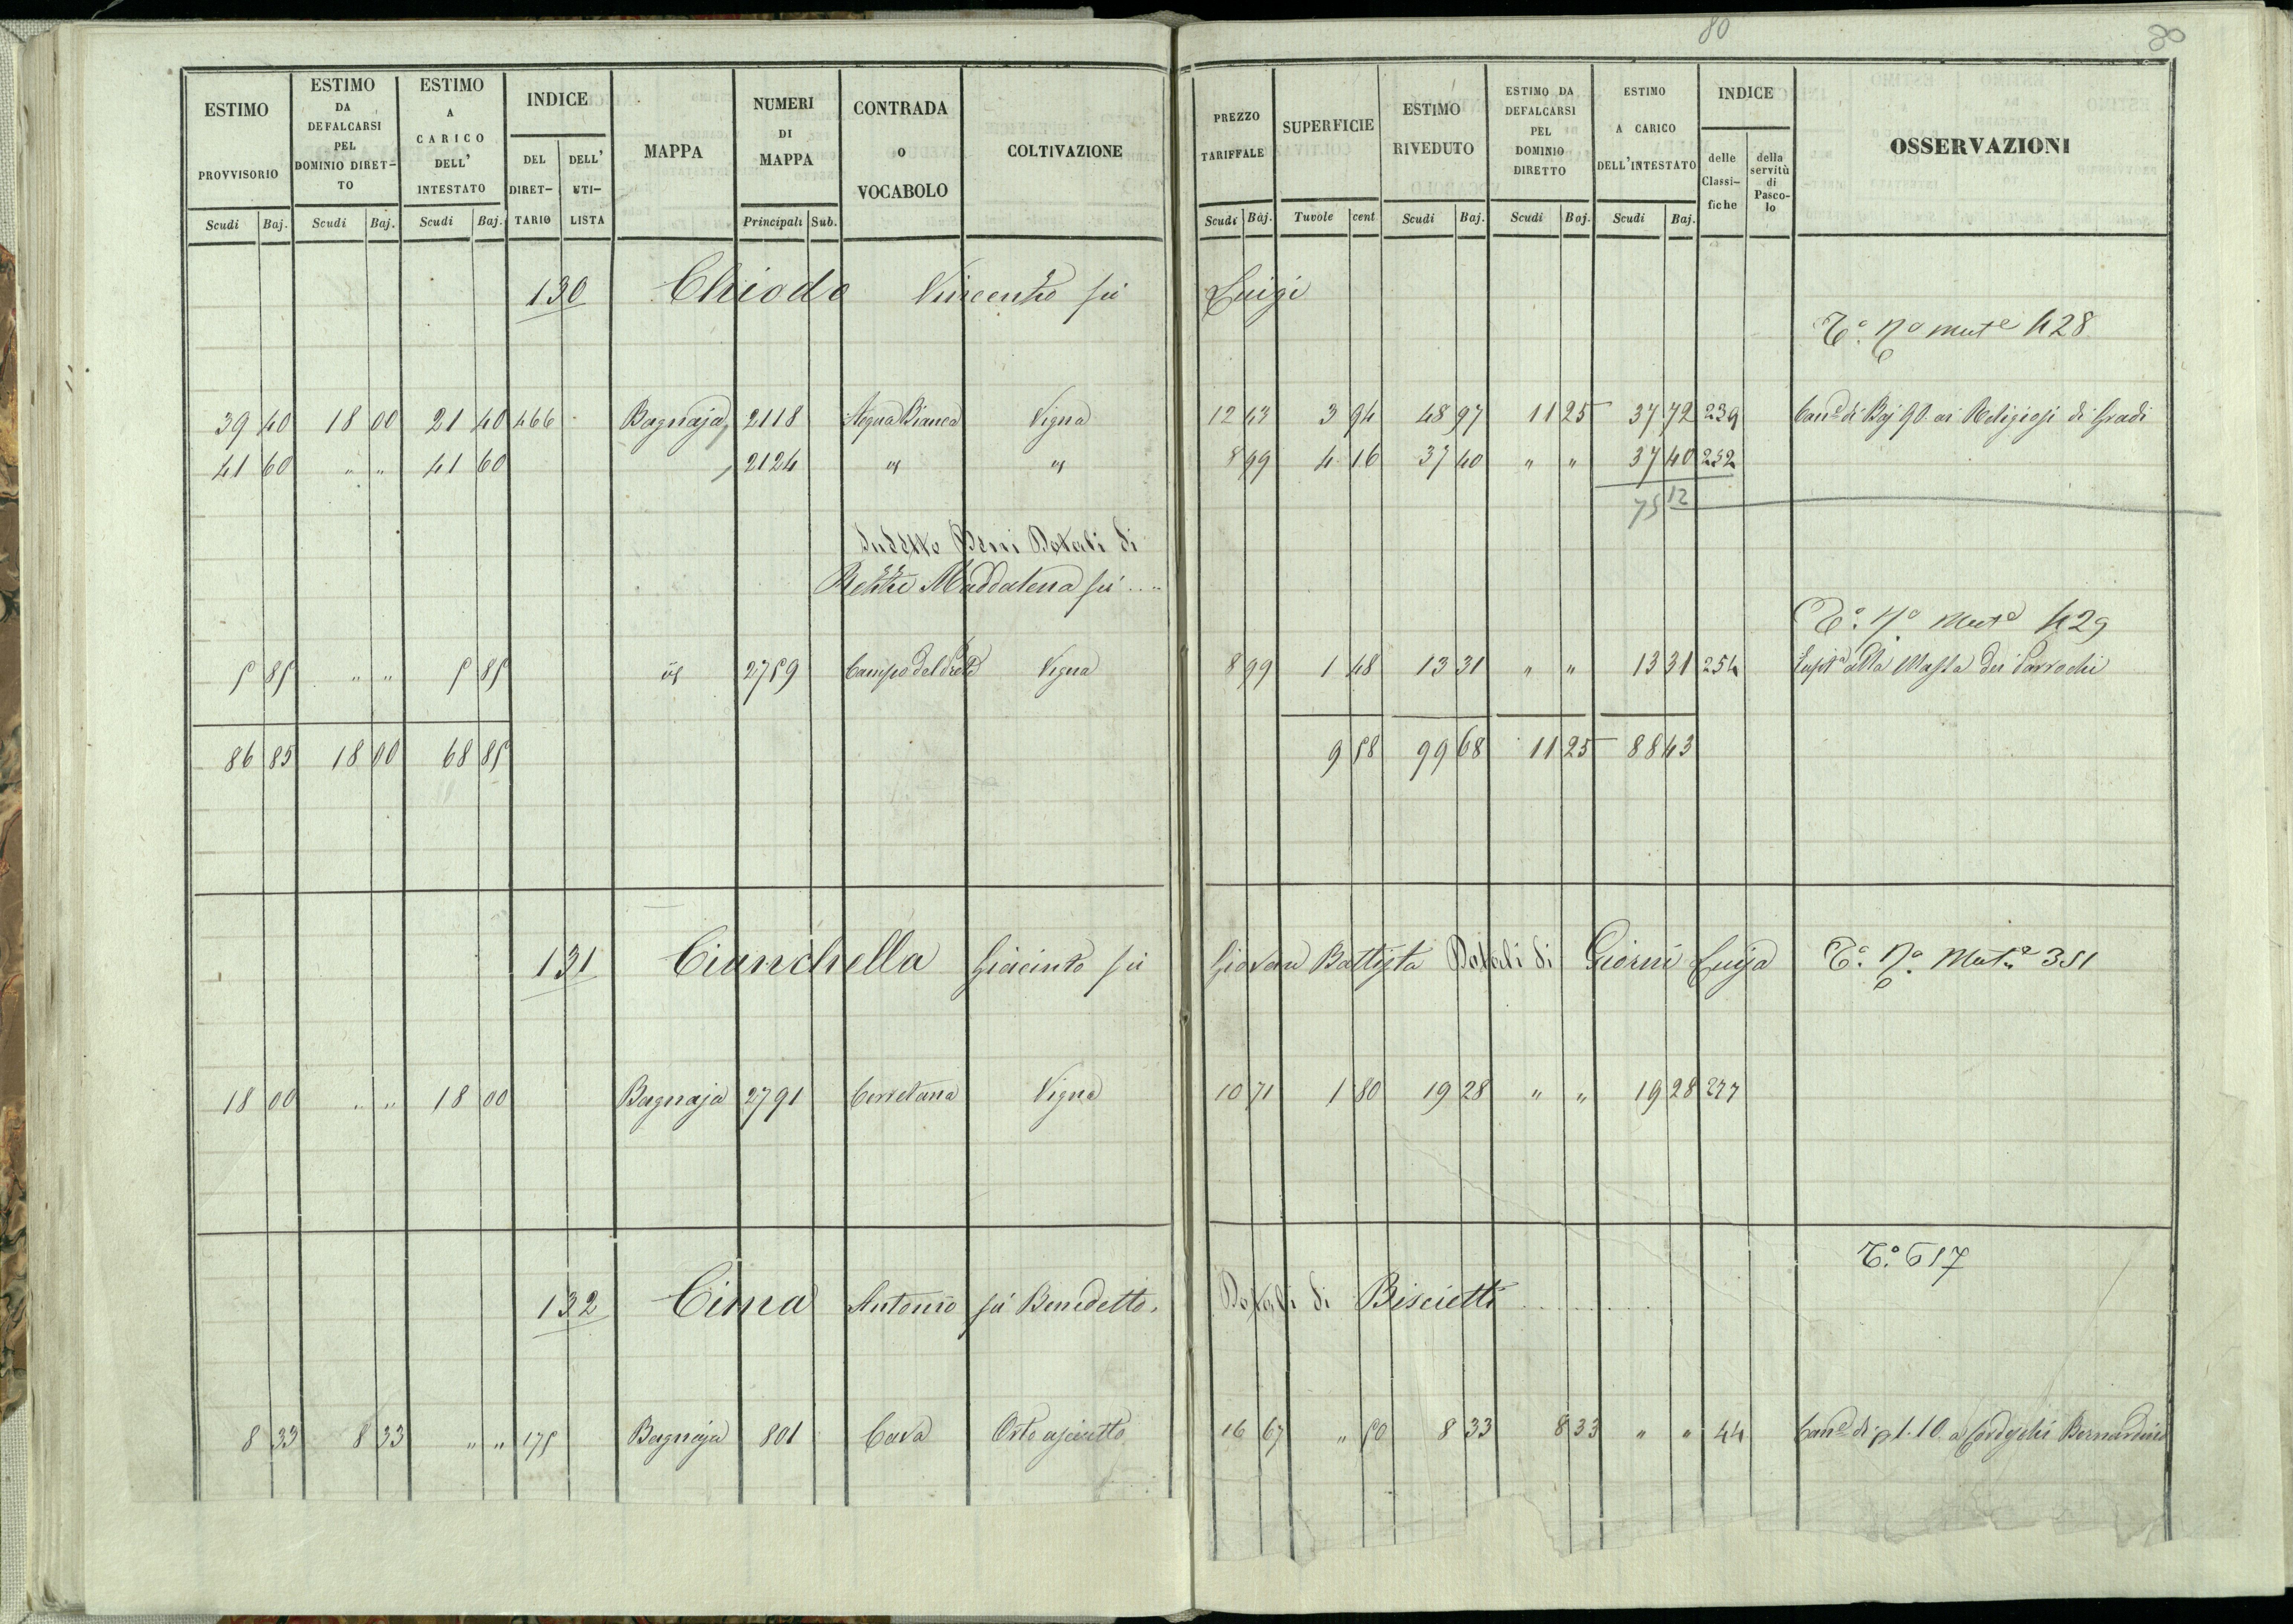 80
80
ESTIMO PROVVISORIO
ESTIMO DA DEFALCARSI PEL DOMINIO DIRET-TO
ESTIMO A CARICO DELL' INTESTATO
INDICE
DEL DIRET-TARIO
DELL' UTI-LISTA
MAPPA
NUMERI DI MAPPA
CONTRADA o VOCABOLO
COLTIVAZIONE
PREZZO TARIFFALE
SUPERFICIE
ESTIMO RIVEDUTO
ESTIMO DA DEFALCARSI PEL DOMINIO DIRETTO
ESTIMO A CARICO DELL'INTESTATO
INDICE
delle Classi-fiche
della servitù di Pasco-lo
OSSERVAZIONI
Scudi Baj. Scudi Baj. Scudi Baj. Principali Sub. Scudi Baj. Tavole cent Scudi Baj. Scudi Baj. Scudi Baj.
130 Chiodo Vincenzo fù Luigi
T.º n.º mut.e 428
39 40 18 00 21 40 466 Bagnaja 2118 Acqua Bianca Vigna 12 43 3 94 48 97 11 25 37 72 239 Can.e di Baj 90 ai Religiosi di Gradi
41 60 " " 41 60 2124 " " 8 99 4 16 37 40 " " 37 40 252
75 12
Sudetto Beni Dotali di
Maddalena fù ....
T.º n.º mut.e 429
5 85 " " 5 85 2759 Vigna 8 99 1 48 13 31 " " 13 31 254 alla Massa dei Parrochi
86 85 18 00 68 85 9 58 99 68 11 25 88 43
131 Cianchella Giacinto fù Giovan Battista Dotali di Giorni Luisa T.º n.º Mut.e 351
18 00 " " 18 00 Bagnaja 2791 Cerretana Vigna 10 71 1 80 19 28 " " 19 28 277
T.º 617
132 Cima Antonio fù Benedetto. Dotali di Biscietti ........
8 33 8 33 " " 175 Bagnaja 801 Cava Orto asciutto 16 67 " 50 8 33 8 33 " " 44 Can.e di 1.10 a Bernardino